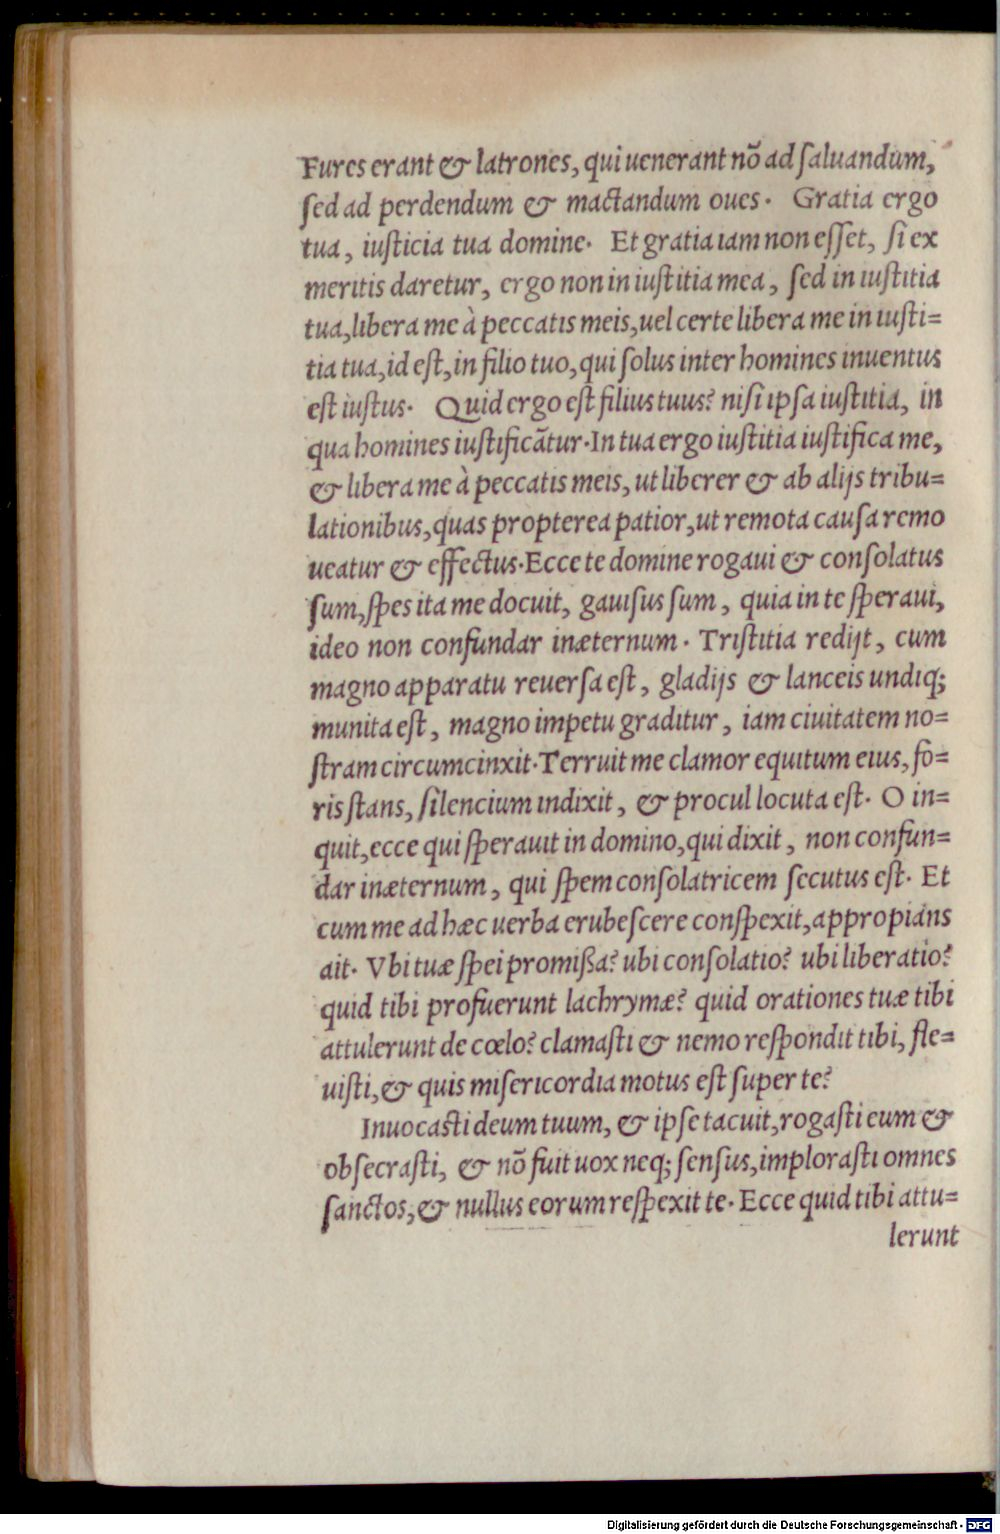 Fures erant & latrones, qui uenerant nõ ad ſaluandum,
ſed ad perdendum & mactandum oues. Gratia ergo
tua, iuſticia tua domine. Et gratia iam non eſſet, ſi ex
meritis daretur, ergo non in iuſtitia mea, ſed in iuſtitia
tua, libera me à peccatis meis, uel certe libera me in iuſti=
tia tua, id eſt, in filio tuo, qui ſolus inter homines inuentus
eſt iuſtus. Quid ergo eſt filius tuus? niſi ipſa iuſtitia, in
qua homines iuſtificãtur. In tua ergo iuſtitia iuſtifica me,
& libera me à peccatis meis, ut liberer & ab alijs tribu=
lationibus, quas propterea patior, ut remota cauſa remo
ueatur & effectus. Ecce te domine rogaui & conſolatus
ſum, ſpes ita me docuit, gauiſus ſum, quia in te ſperaui,
ideo non confundar inæternum. Triſtitia redijt, cum
magno apparatu reuerſa eſt, gladijs & lanceis undiq;
munita eſt, magno impetu graditur, iam ciuitatem no=
ſtram circumcinxit. Terruit me clamor equitum eius, fo=
ris ſtans, ſilencium indixit, & procul locuta eſt. O in=
quit, ecce qui ſperauit in domino, qui dixit, non confun=
dar inæternum, qui ſpem conſolatricem ſecutus eſt. Et
cum me ad hæc uerba erubeſcere conſpexit, appropians
ait. Vbi tuæ ſpei promißa? ubi conſolatio? ubi liberatio?
quid tibi profuerunt lachrymæ? quid orationes tuæ tibi
attulerunt de cœlo? clamaſti & nemo reſpondit tibi, fle=
uiſti, & quis miſericordia motus eſt ſuper te?
Inuocaſti deum tuum, & ipſe tacuit, rogaſti eum &
obſecraſti, & nõ fuit uox neq; ſenſus, imploraſti omnes
ſanctos, & nullus eorum reſpexit te. Ecce quid tibi attu=
lerunt
Digitalisierung gefördert durch die Deutsche Forschungsgemeinschaft - DFG